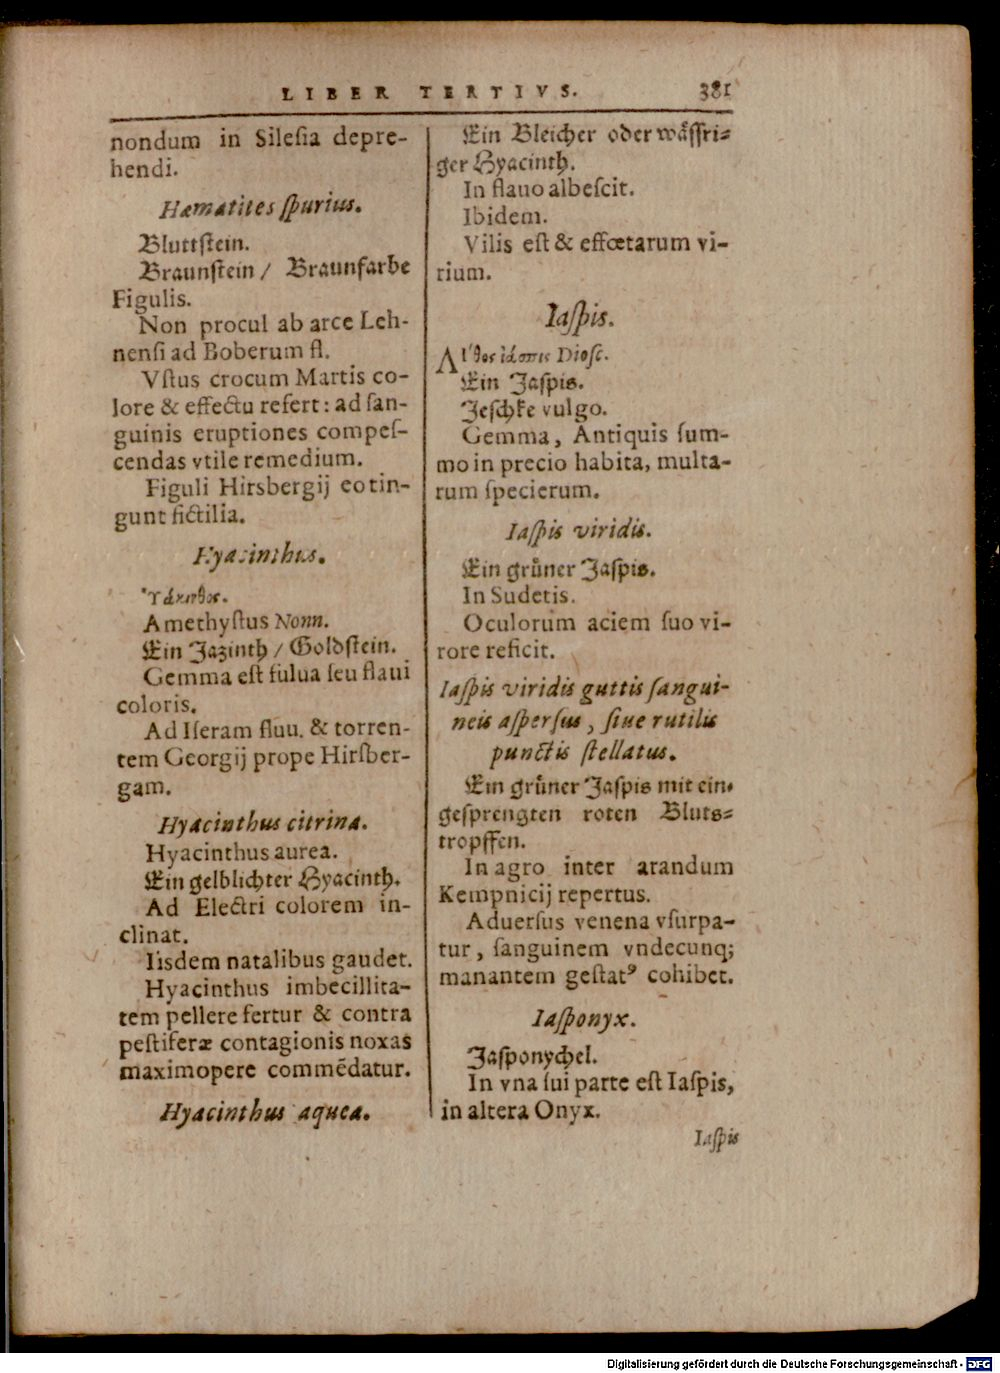 LIBER TERTIVS. 381
nondum in Sileſia depre-
hendi.
Hæmatites ſpurius.
Bluttſtein.
Braunſtein / Braunfarbe
Figulis.
Non procul ab arce Leh-
nenſi ad Boberum fl.
Vſtus crocum Martis co-
lore & effectu refert: ad ſan-
guinis eruptiones compeſ-
cendas vtile remedium.
Figuli Hirsbergij eo tin-
gunt fictilia.
Hyacinthus.
Ὑάκινθος.
Amethyſtus Nonn.
Ein Jazinth / Goldſtein.
Gemma eſt fulua ſeu flaui
coloris.
Ad Iſeram fluu. & torren-
tem Georgij prope Hirſber-
gam.
Hyacinthus citrina.
Hyacinthus aurea.
Ein gelblichter Hyacinth.
Ad Electri colorem in-
clinat.
Iisdem natalibus gaudet.
Hyacinthus imbecillita-
tem pellere fertur & contra
peſtiferæ contagionis noxas
maximopere commēdatur.
Hyacinthus aquea.
Ein Bleicher oder wåſſri-
ger Hyacinth.
In flauo albeſcit.
Ibidem.
Vilis eſt & effœtarum vi-
rium.
Iaſpis.
Λίθος ἰάσπις Dioſc.
Ein Jaſpis.
Jeſchke vulgo.
Gemma, Antiquis ſum-
mo in precio habita, multa-
rum ſpecierum.
Iaſpis viridis.
Ein grůner Jaſpis.
In Sudetis.
Oculorum aciem ſuo vi-
rore reficit.
Iaſpis viridis guttis ſangui-
neis aſperſus, ſiue rutilis
punctis ſtellatus.
Ein grůner Jaſpis mit ein-
geſprengten roten Bluts-
tropffen.
In agro inter arandum
Kempnicij repertus.
Aduerſus venena vſurpa-
tur, ſanguinem vndecunq;
manantem geſtatꝰ cohibet.
Iaſponyx.
Jaſponychel.
In vna ſui parte eſt Iaſpis,
in altera Onyx.
Iaſpis
Digitalisierung gefördert durch die Deutsche Forschungsgemeinschaft - DFG